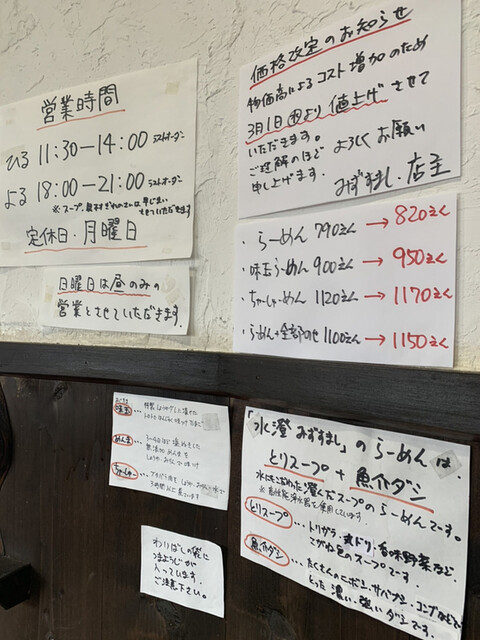 営業時間
ひる 11:30—14:00 ラストオーダー
よる 18:00—21:00 ラストオーダー
定休日・月曜日
日曜日は昼のみの
営業とさせていただきます。
価格改定のお知らせ
物価高によるコスト増加のため
3月1日より値上げさせて
いただきます。
ご理解のほど よろしくお願い
申し上げます。
みずすまし・店主
・らーめん 790えん→820えん
・味玉らーめん 900えん→950えん
・ちゃーしゅーめん 1120えん→1170えん
・らーめん+全部のせ 1100えん→1150えん
味玉・・・
めんま・・・
ちゃーしゅー・・・
わりばしの袋に
つまようじが
入っています。
ご注意下さい。
「水澄 みずすまし」のらーめんは、
とりスープ+魚介ダシ
水にこだわた"澄んだスープのらーめんです。
とりスープ・・・トリガラ・丸ドリ・香味野菜など、
こがね色のスープです
魚介ダシ・・・たくさんのニボシ・サバブシ・コンブなどで
とった濃い・強いダシです。